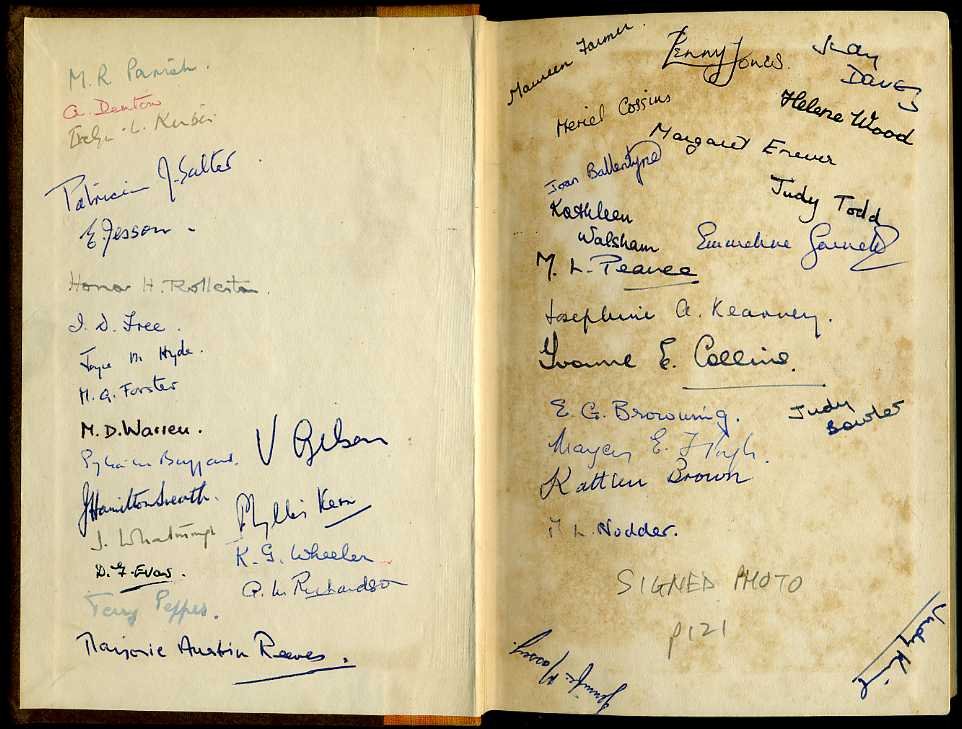 M. R. Parrish.
A. Denton
L. Kerbir
Patricia J. Salter
E. Jesson
Honor H. Rollerton
J. D. Free.
Joyce M. Hyde.
M. G. Forster
M. D. Warren.
V Gibson
J Hamilton Smith.
Phyllis Kern
J.
K. G. Wheeler
D. G. Evas.
A. W. Richardson
Terry Pepper.
Marjorie Austin Reeves.
Maureen Farmer
Penny Jones.
Judy
Davey
Meriel Cossins
Helene Wood
Margaret Enever
Joan Ballentyne
Judy Todd
Kathleen
Walsham
Emmeline Garnett
M. L. Pearce
Josephine A. Kearney.
Yvonne E. Collins.
E. G. Browning.
Judy
Bowler
E.
Kathleen Brown
M L. Nodder.
SIGNED PHOTO
P121
Jennifer Massey.
Judy King